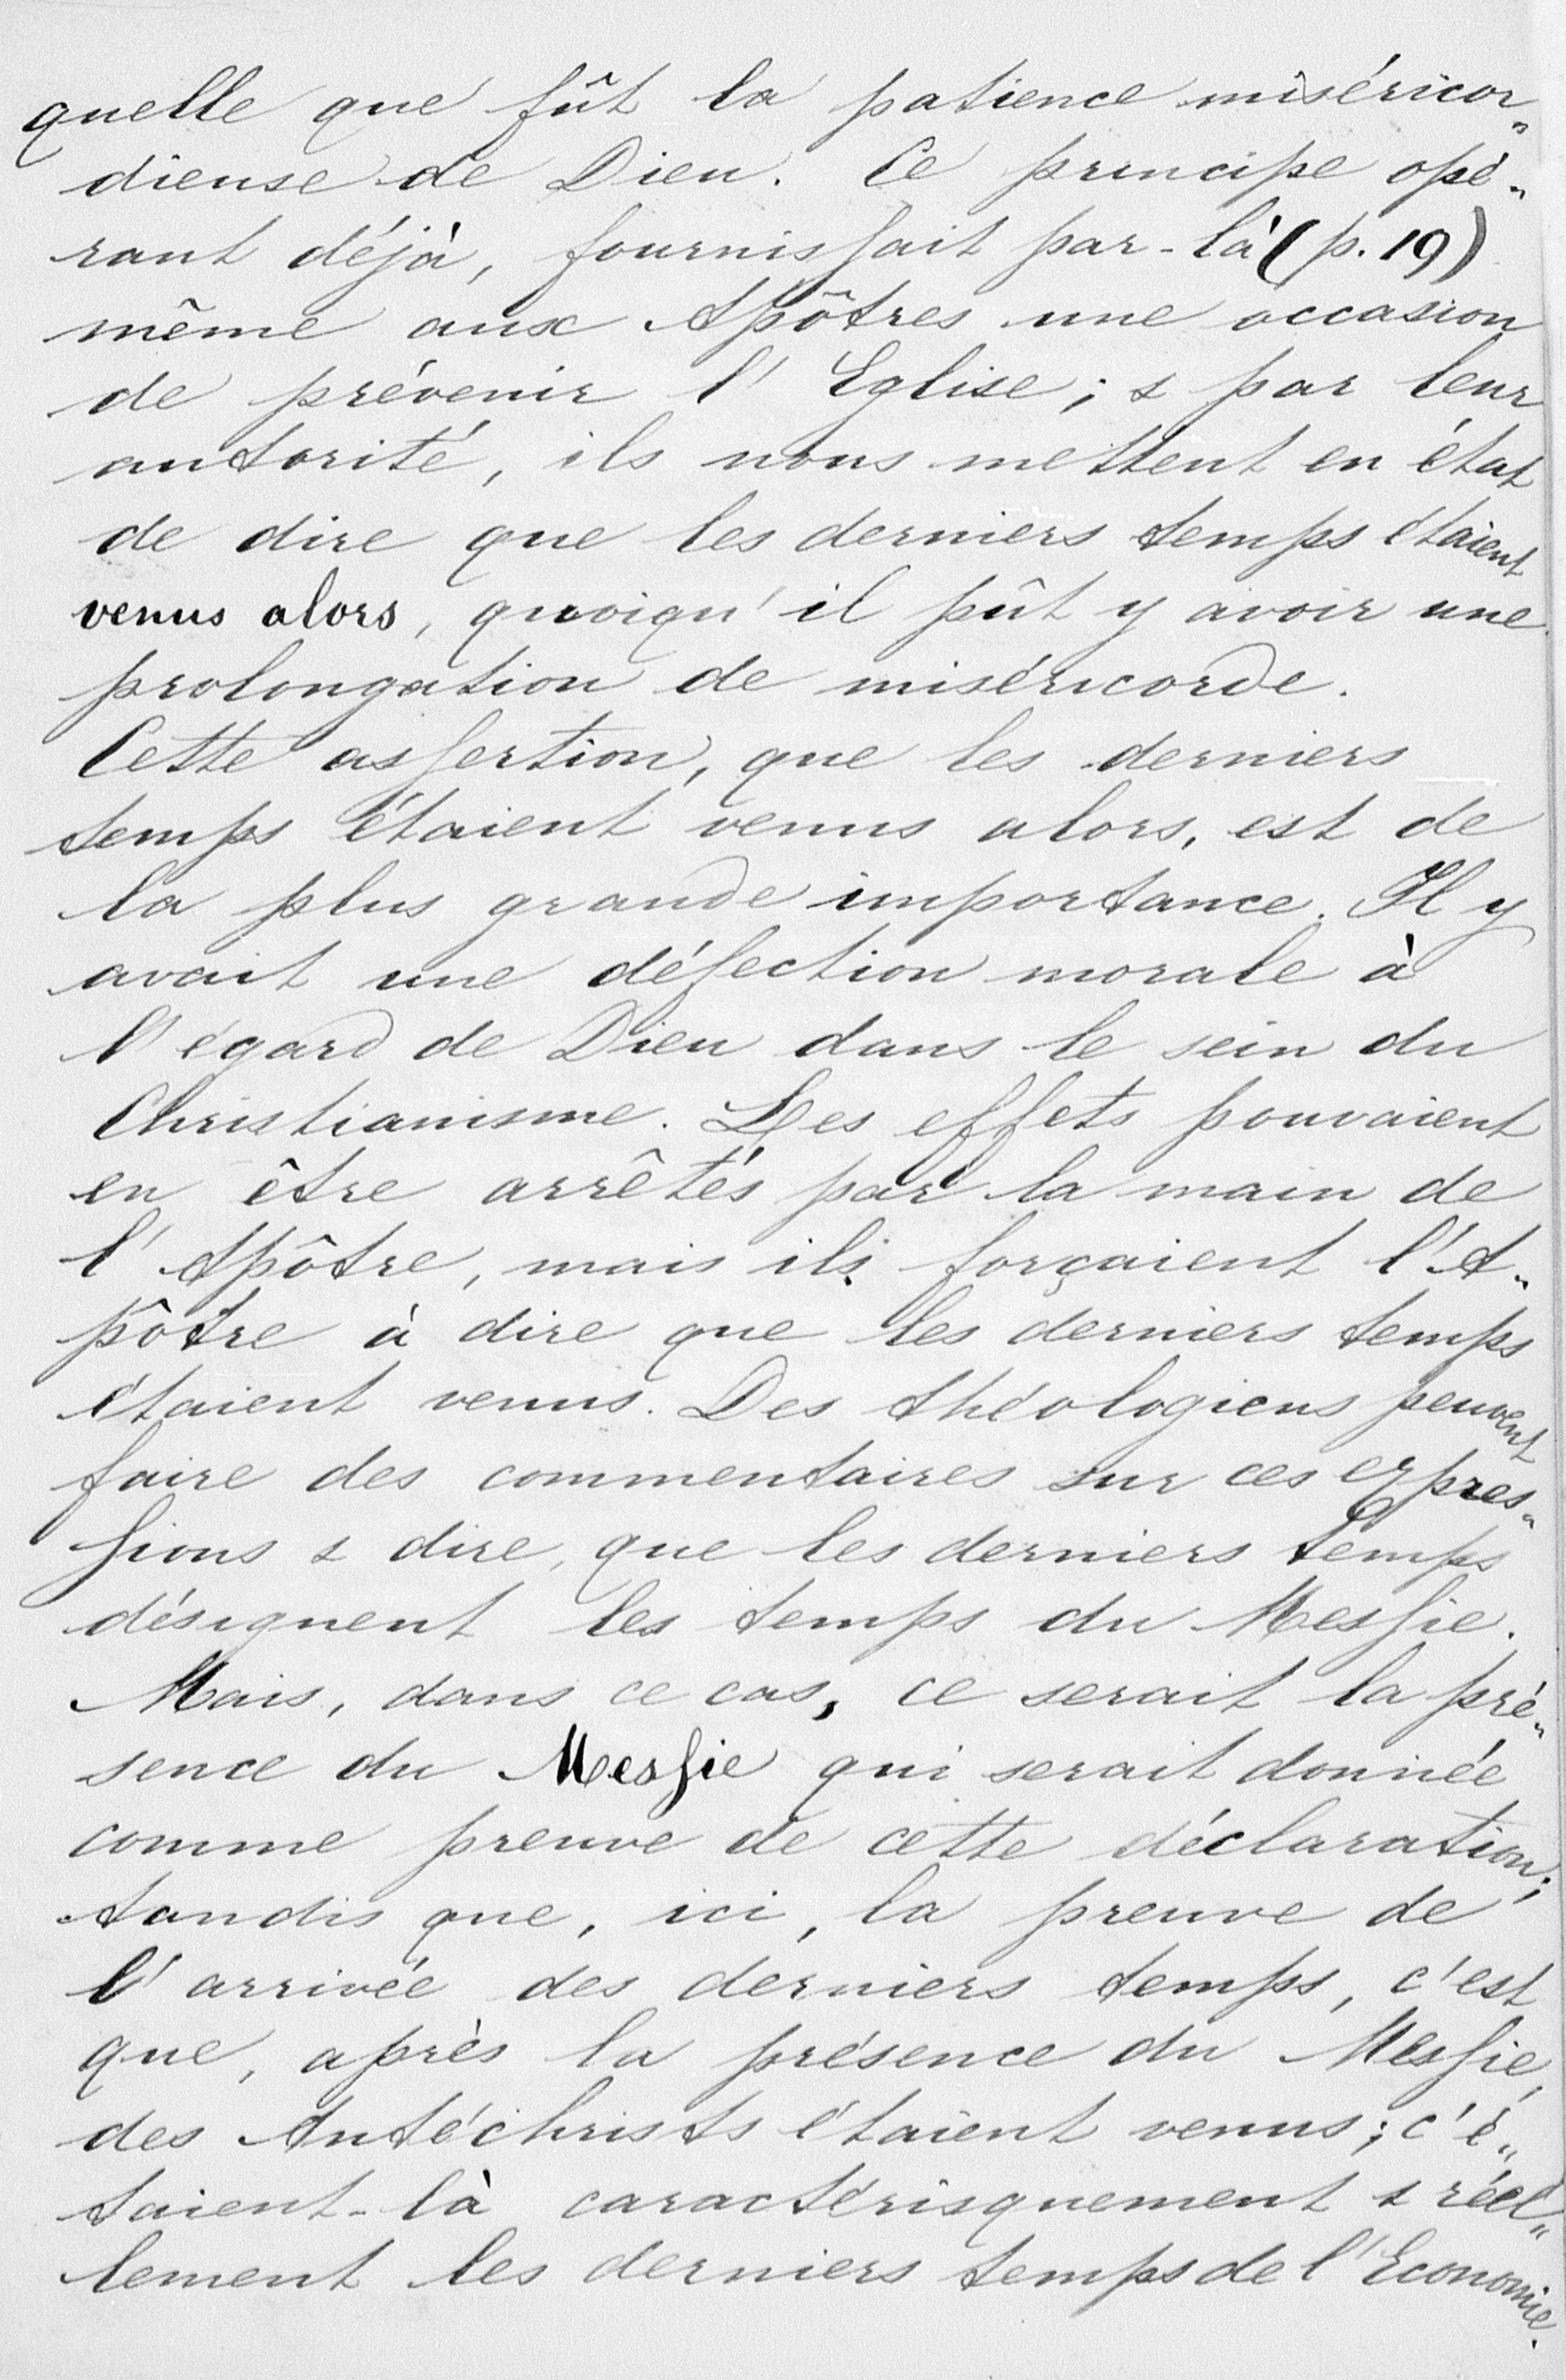 quelle que fût la patience miséricor„
dieuse de Dieu. Ce principe opé„
rant déjà, fournissait par-là (p. 19)
même aux Apôtres une occasion
de prévenir l'Eglise; & par leur
autorité, ils nous mettent en état
de dire que les derniers temps étaient
venus alors, quoiqu'il pût y avoir une
prolongation de miséricorde.
Cette assertion, que les derniers
temps étaient venus alors, est de
la plus grande importance. Il y
avait une défection morale à
l'égard de Dieu dans le sein du
Christianisme. Les effets pouvaient
en être arrêtés par la main de
l'Apôtre, mais ils forçaient l'A„
pôtre à dire que les derniers temps
étaient venus. Des théologiens peuvent
faire des commentaires sur ces expres„
sions & dire, que les derniers temps
désignent les temps du Messie.
Mais, dans ce cas, ce serait la pré„
sence du Messie qui serait donnée
comme preuve de cette déclaration;
tandis que, ici, la preuve de
l'arrivée des derniers temps, c'est
que, après la présence du Messie,
des Antéchrists étaient venus; c'é„
taient-là caractérisquement & réel„
lement les derniers temps de l'Economie.